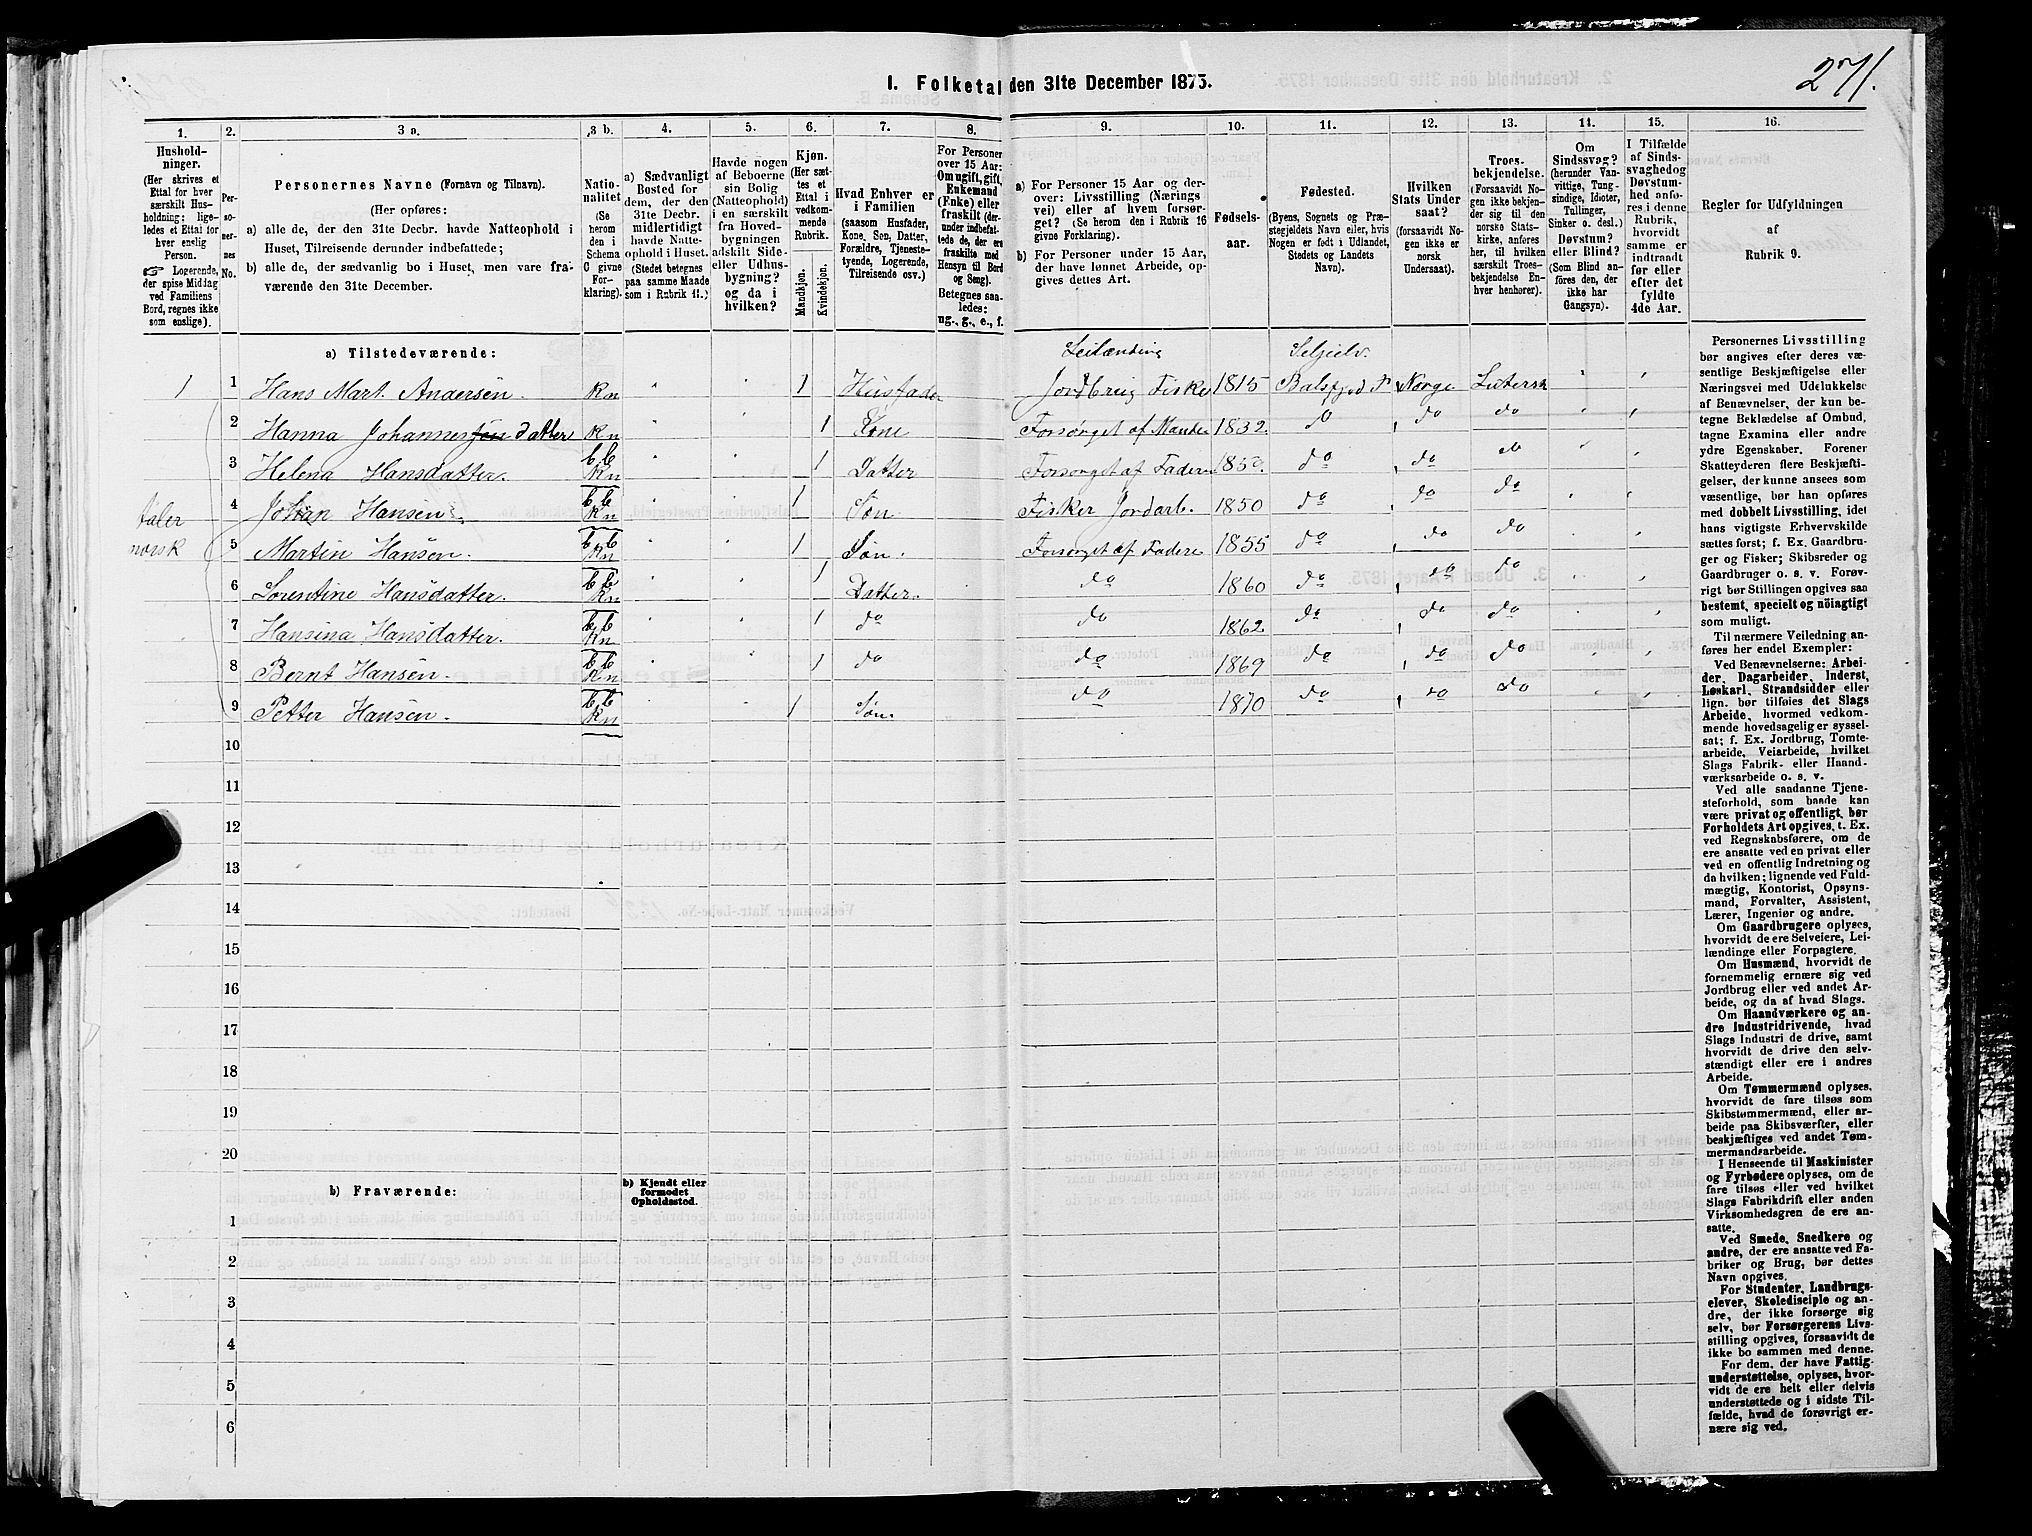 271.
I. Folketal den 31te December 1875.
1. 2. 3 a. 3 b. 4. 5. 6. 7. 8. 9. 10. 11. 12. 13. 14. 15. 16.
Husholdninger.
(Her skrives et
Ettal for hver
særskilt Husholdning;
ligeledes et Ettal for
hver enslig
Person.
☞ Logerende,
der spise Middag
ved Familiens
Bord, regnes ikke
som enslige).
Personernes No.
Personernes Navne (Fornavn og Tilnavn).
(Her opføres:
a) alle de, der den 31te Decbr. havde Natteophold i
Huset, Tilreisende derunder indbefattede;
b) alle de, der sædvanlig bo i Huset, men vare fraværende
den 31te December.
Nationalitet
(Se
herom
den i
Schema
C givne
Forklaring).
a) Sædvanligt
Bosted for
dem, der den
31te Decbr.
midlertidigt
havde Natteophold
i Huset.
(Stedet betegnes
paa samme Maade
som i Rubrik 11.)
Havde nogen
af Beboerne
sin Bolig
(Natteophold)
i en særskilt
fra Hovedbygningen
adskilt Side-
eller Udhusbygning?
og da i
hvilken?
Kjøn.
(Her sættes
et
Ettal i
vedkommende
Rubrik.
Mandkjøn.
Kvindekjøn.
Hvad Enhver er
i Familien
(saasom Husfader,
Kone, Søn, Datter,
Forældre, Tjenestetyende,
Logerende,
Tilreisende osv.)
For Personer
over 15 Aar:
Om ugift, gift,
Enkemand
(Enke) eller
fraskilt (derunder
indbefattede
de, der ere
fraskilte med
Hensyn til Bord
og Seng).
Betegnes saaledes:
ug., g., e., f.
a) For Personer 15 Aar og derover:
Livsstilling (Næringsvei)
eller af hvem forsørget?
(Se herom den i Rubrik 16
givne Forklaring).
b) For Personer under 15 Aar,
der have lønnet Arbeide, opgives
dettes Art.
Fødselsaar.
Fødested.
(Byens, Sognets og Præstegjeldets
Navn eller, hvis
Nogen er født i Udlandet,
Stedets og Landets
Navn).
Hvilken
Stats Undersaat?
(forsaavidt Nogen
ikke er
norsk
Undersaat).
Troesbekjendelse.
(Forsaavidt Nogen
ikke bekjender
sig til den
norske Statskirke,
anføres
her, til hvilken
særskilt Troesbekjendelse
Enhver
henhører).
Om
Sindssvag?
(herunder Vanvittige,
Tungsindige,
Idioter,
Tullinger,
Sinker o. desl.)
Døvstum?
eller Blind?
(Som Blind anføres
den, der
ikke har
Gangsyn).
I Tilfælde
af Sindssvaghed
og
Døvstumhed
anføres
i denne
Rubrik,
hvorvidt
samme er
indtraadt
før eller
efter det
fyldte
4de Aar.
Regler for Udfyldningen
af
Rubrik 9.
a) Tilstedeværende: Leilænding
1 1 Hans Mart. Andersen. Kn 1 Husfader Jordbrug Fisker 1815 Balsfjord P Norge Lutersk
2 Hanna Johannes datter Kn 1 Kone Forsörget af Manden 1832. do do do
3 Helena Hansdatter. Kn 1 Datter Forsorget af Faderen do do do
taler
norsk
4 Johan Hansen. Kn 1 Søn Fisker Jordarb. 1850 do do do
5 Martin Hansen. Kn 1 Søn. Forsorget af Fadere 1855 do do do
6 Lorentine Hansdatter. Kn 1 Datter. do 1860 do do do
7 Hansina Hansdatter. Kn 1 do do 1862 do do do
8 Bernt Hansen. Kn 1 do do 1869 do do do
9 Petter Hansen. Kn 1 Søn. do 1870 do do do
10
11
12
13
14
15
16
17
18
19
20
b) Fraværende: b) Kjendt eller
formodet
Opholdssted.
1
2
3
4
5
6
Personernes Livsstilling
bør angives efter deres væsentlige
Beskjæftigelse eller
Næringsvei med Udelukkelse
af Benævnelser, der kun betegne
Beklædelse af Ombud,
tagne Examina eller andre
ydre Egenskaber. Forener
Skatteyderen flere Beskjæftigelser,
der kunne ansees som
væsentlige, bør han opføres
med dobbelt Livsstilling, idet
hans vigtigste Erhvervskilde
sættes først; f. Ex. Gaardbruger
og Fisker; Skibsreder og
Gaardbruger o. s. v. Forøvrigt
bør Stillingen opgives saa
bestemt, specielt og nöiagtigt
som muligt.
Til nærmere Veiledning anføres
her endel Exempler:
Ved Benævnelserne: Arbeider,
Dagarbeider, Inderst,
Løskarl, Strandsidder eller
lign. bør tilføies det Slags
Arbeide, hvormed vedkommende
hovedsagelig er sysselsat;
f. Ex. Jordbrug, Tomtearbeide,
Veiarbeide, hvilket
Slags Fabrik- eller Haandværksarbeide
o. s. v.
Ved alle saadanne Tjenesteforhold,
som baade kan
være privat og offentligt, bør
Forholdets Art opgives, t. Ex.
ved Regnskabsførere, om de
ere ansatte ved en privat eller
ved en offentlig Indretning og
da hvilken; lignende ved Fuldmægtig,
Kontorist, Opsynsmand,
Forvalter, Assistent,
Lærer, Ingeniør og andre.
Om Gaardbrugere oplyses,
hvorvidt de ere Selveiere, Leilændinge
eller Forpagtere.
Om Husmænd, hvorvidt de
fornemmelig ernære sig ved
Jordbrug eller ved andet Arbeide,
og da af hvad Slags.
Om Haandværkere og andre
Industridrivende, hvad
Slags Industri de drive, samt
hvorvidt de drive den selvstændigt
eller ere i andres
Arbeide.
Om Tømmermænd oplyses,
hvorvidt de fare tilsøs som
Skibstømmermænd, eller arbeide
paa Skibsværfter, eller
beskjæftiges ved andet Tømmermandsarbeide.
I Henseende til Maskinister
og Fyrbødere oplyses, om de
fare tilsøs eller ved hvilket
Slags Fabrikdrift eller anden
Virksomhedsgren de ere ansatte.
Ved Smede, Snedkere og
andre, der ere ansatte ved Fabriker
og Brug, bør dettes
Navn opgives.
For Studenter, Landbrugselever,
Skoledisciple og andre,
der ikke forsørge sig
selv, bør Forsørgerens Livsstilling
opgives, forsaavidt de
ikke bo sammen med denne.
For dem, der have Fattigunderstøttelse,
oplyses, hvorvidt
de ere helt eller delvis
understøttede og i sidste Tilfælde,
hvad de forøvrigt ernære
sig ved.